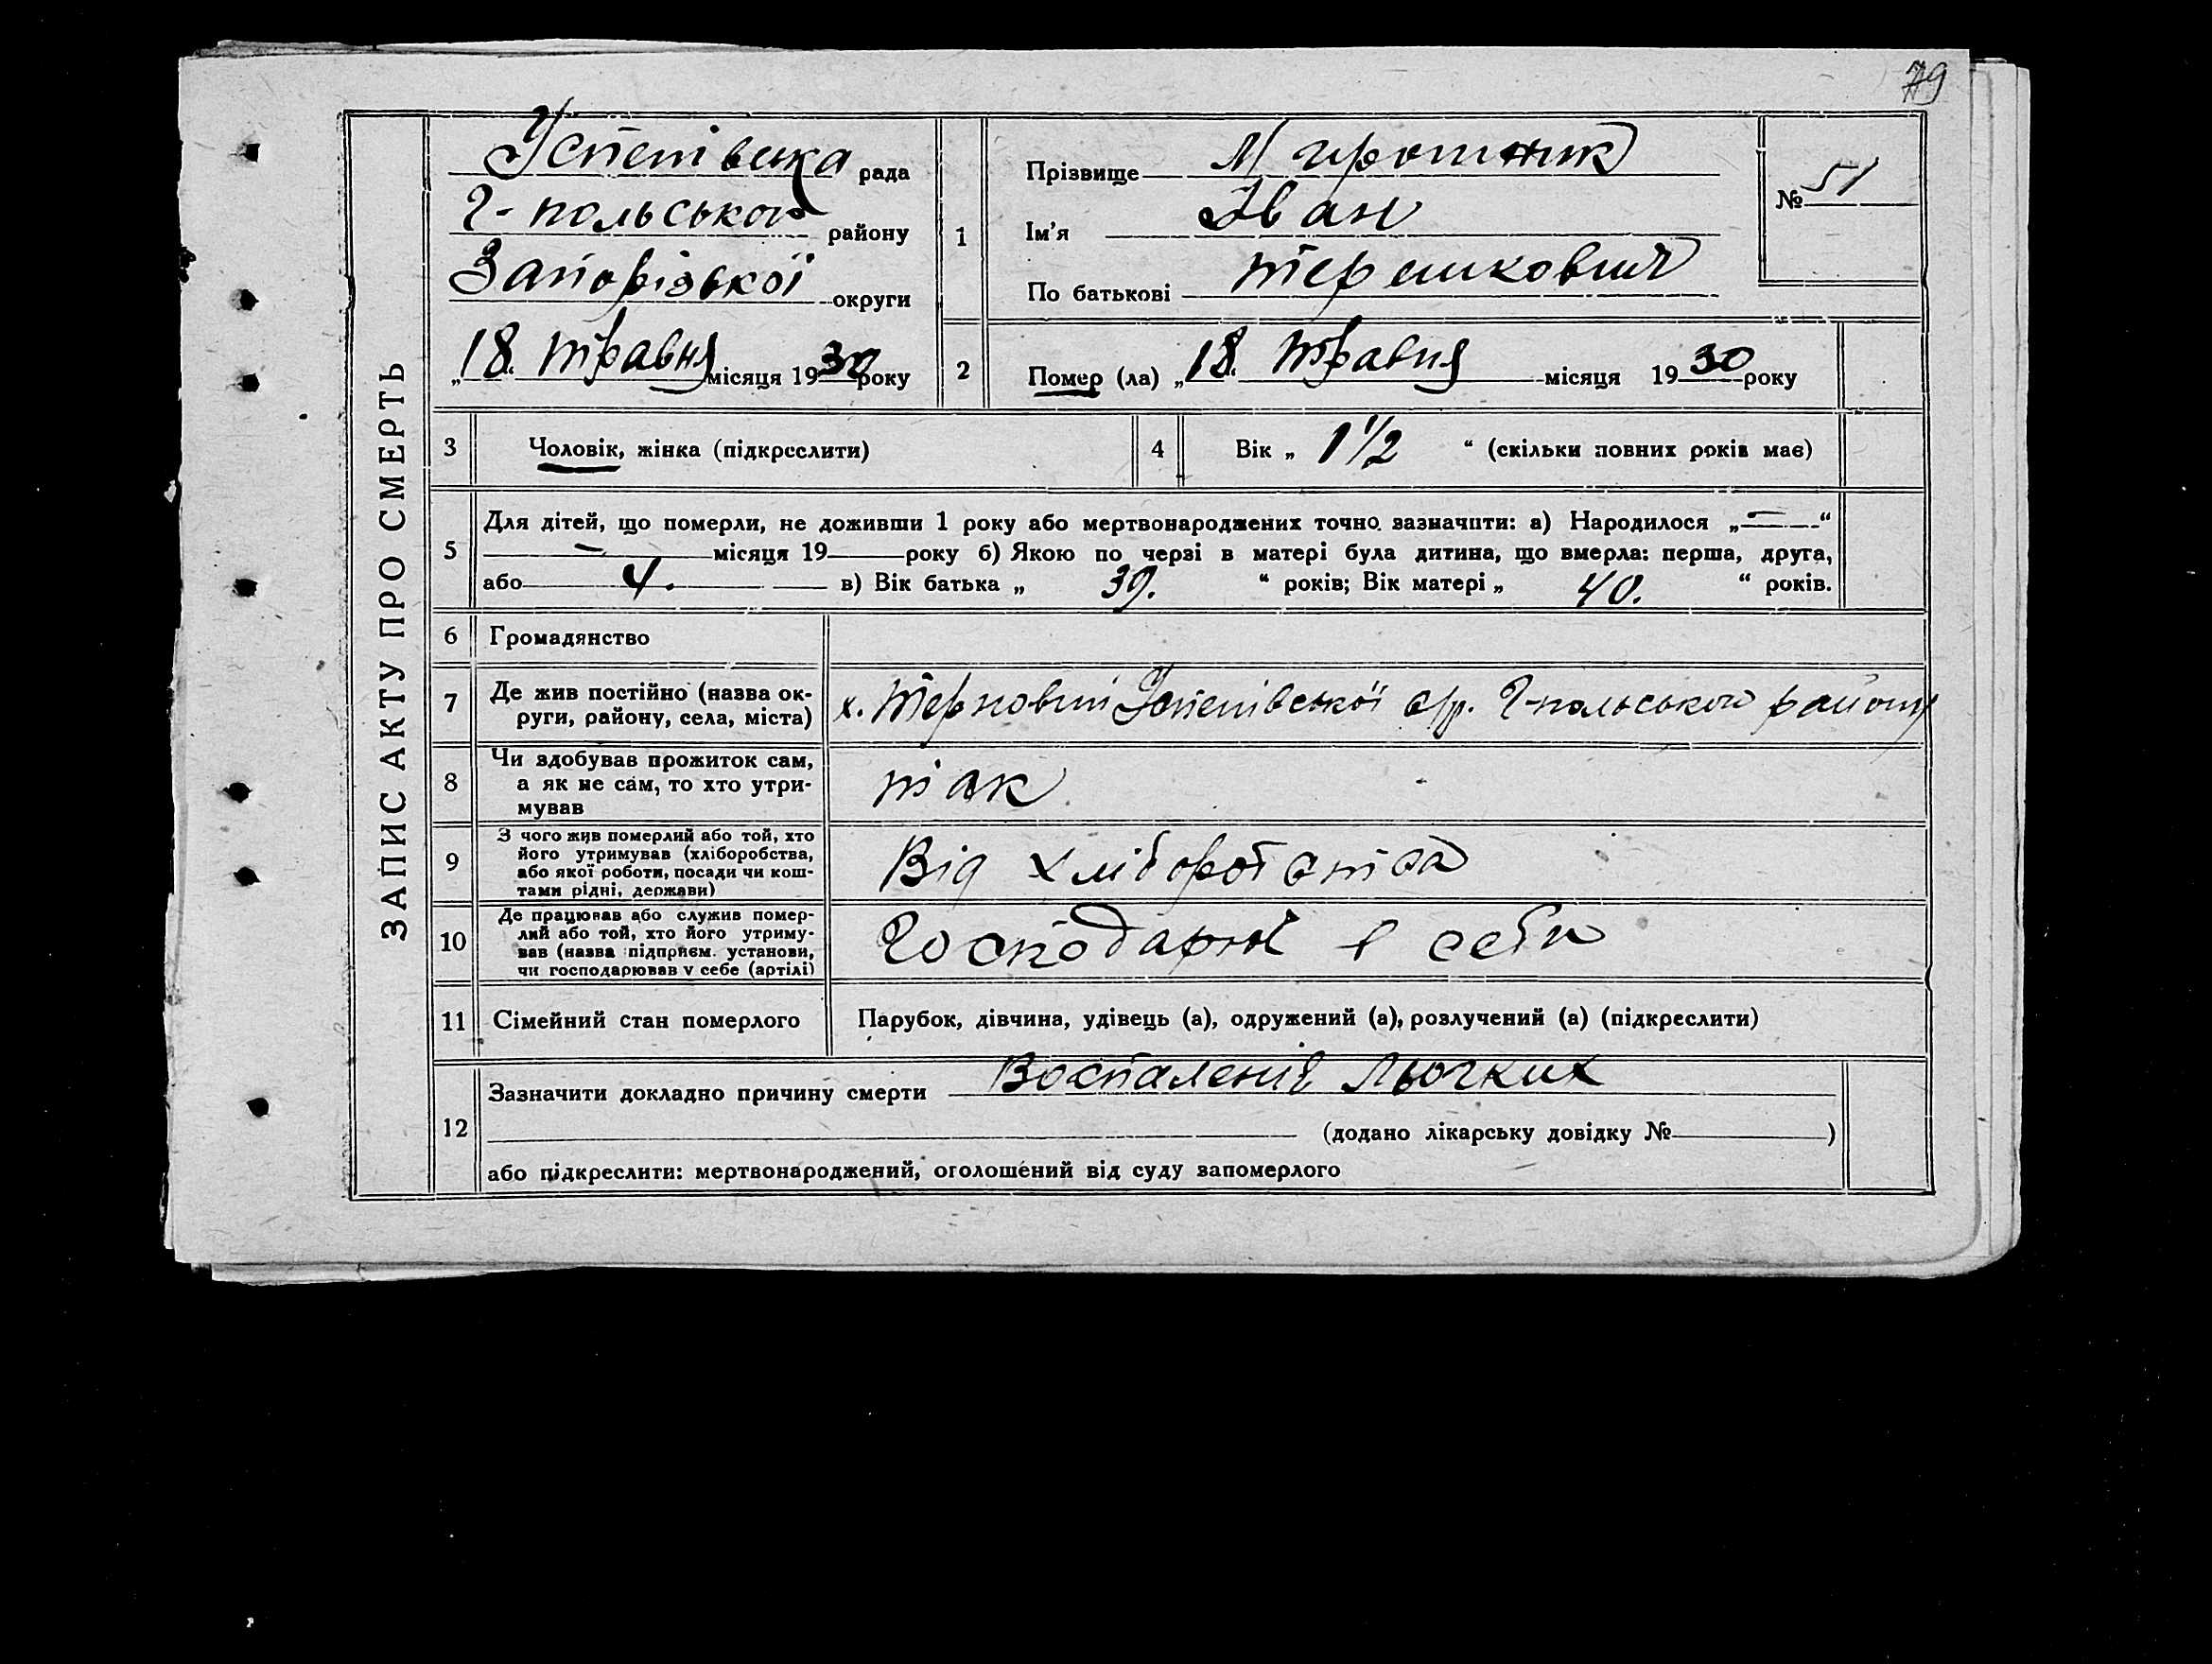 79
ЗАПИС АКТУ ПРО СМЕРТЬ
Успенівська рада
Г-польського району
Запорізької округи
„18. травня місяця 1930 року
1
Прізвище Мирошник
Ім'я Іван
По батькові Терешкович
№ 51
2
Помер (ла) „18. травня місяця 1930 року
3
Чоловік, жінка (підкреслити)
4
Вік „ 1 1/2 “ (скільки повних років має)
5
Для дітей, що померли, не доживши 1 року або мертвонароджених точно зазначити: а) Народилося „—“
— місяця 19 року б) Якою по черзі в матері була дитина, що вмерла: перша, друга,
або 4. в) Вік батька „ 39. “ років; Вік матері „ 40. “ років.
6
Громадянство
7
Де жив постійно (назва ок-
руги, району, села, міста)
х. Терновий Успенівської с/р. Г-польського району
8
Чи здобував прожиток сам,
а як не сам, то хто утри-
мував
так
9
З чого жив померлий або той, хто
його утримував (хліборобства,
або якої роботи, посади чи кош-
тами рідні, держави)
Від хлібороб ства
10
Де працював або служив помер-
лий або той, хто його утриму-
вав (назва підприєм. установи,
чи господарював у себе (артілі)
Господарюв в себи
11
Сімейний стан померлого
Парубок, дівчина, удівець (а), одружений (а), розлучений (а) (підкреслити)
12
Зазначити докладно причину смерти Воспаленія Льогких
(додано лікарську довідку № )
або підкреслити: мертвонароджений, оголошений від суду запомерлого